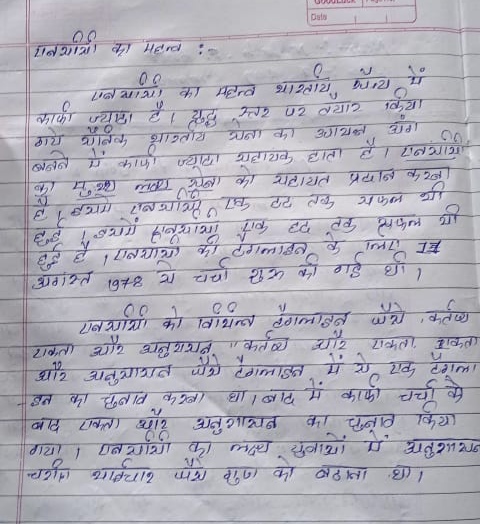 GoodLuck
Date
एनसीसी का महत्व :-
एनसीसी का महत्व भारतीय सैन्य में
काफी ज्यादा है। युद्ध स्तर पर तैयार किया
गये सैनिक भारतीय सेना का अभिन्न अंग
बनने में काफी ज्यादा सहायक होता है। एनसीसी
का मुख्य लक्ष्य सेना को सहायता प्रदान करना
है, इसमें एनसीसी एक हद तक सफल भी
हुई, इसमें एनसीसी एक हद तक सफल भी
हुई है। एनसीसी की टैगलाइन के लिए 11
अगस्त 1978 से चर्चा शुरू की गई थी।
एनसीसी को विभिन्न टैगलाइन जैसे, कर्तव्य
एकता और अनुशासन, "कर्तव्य और एकता, एकता
और अनुशासन जैसे टैगलाइन में से एक टैगला
इन का चुनाव करना था, बाद में काफी चर्चा के
बाद एकता और अनुशासन का चुनाव किया
गया। एनसीसी का लक्ष्य युवाओं में अनुशासन
चरित्र भाईचारे जैसे गुण को बढाना था।